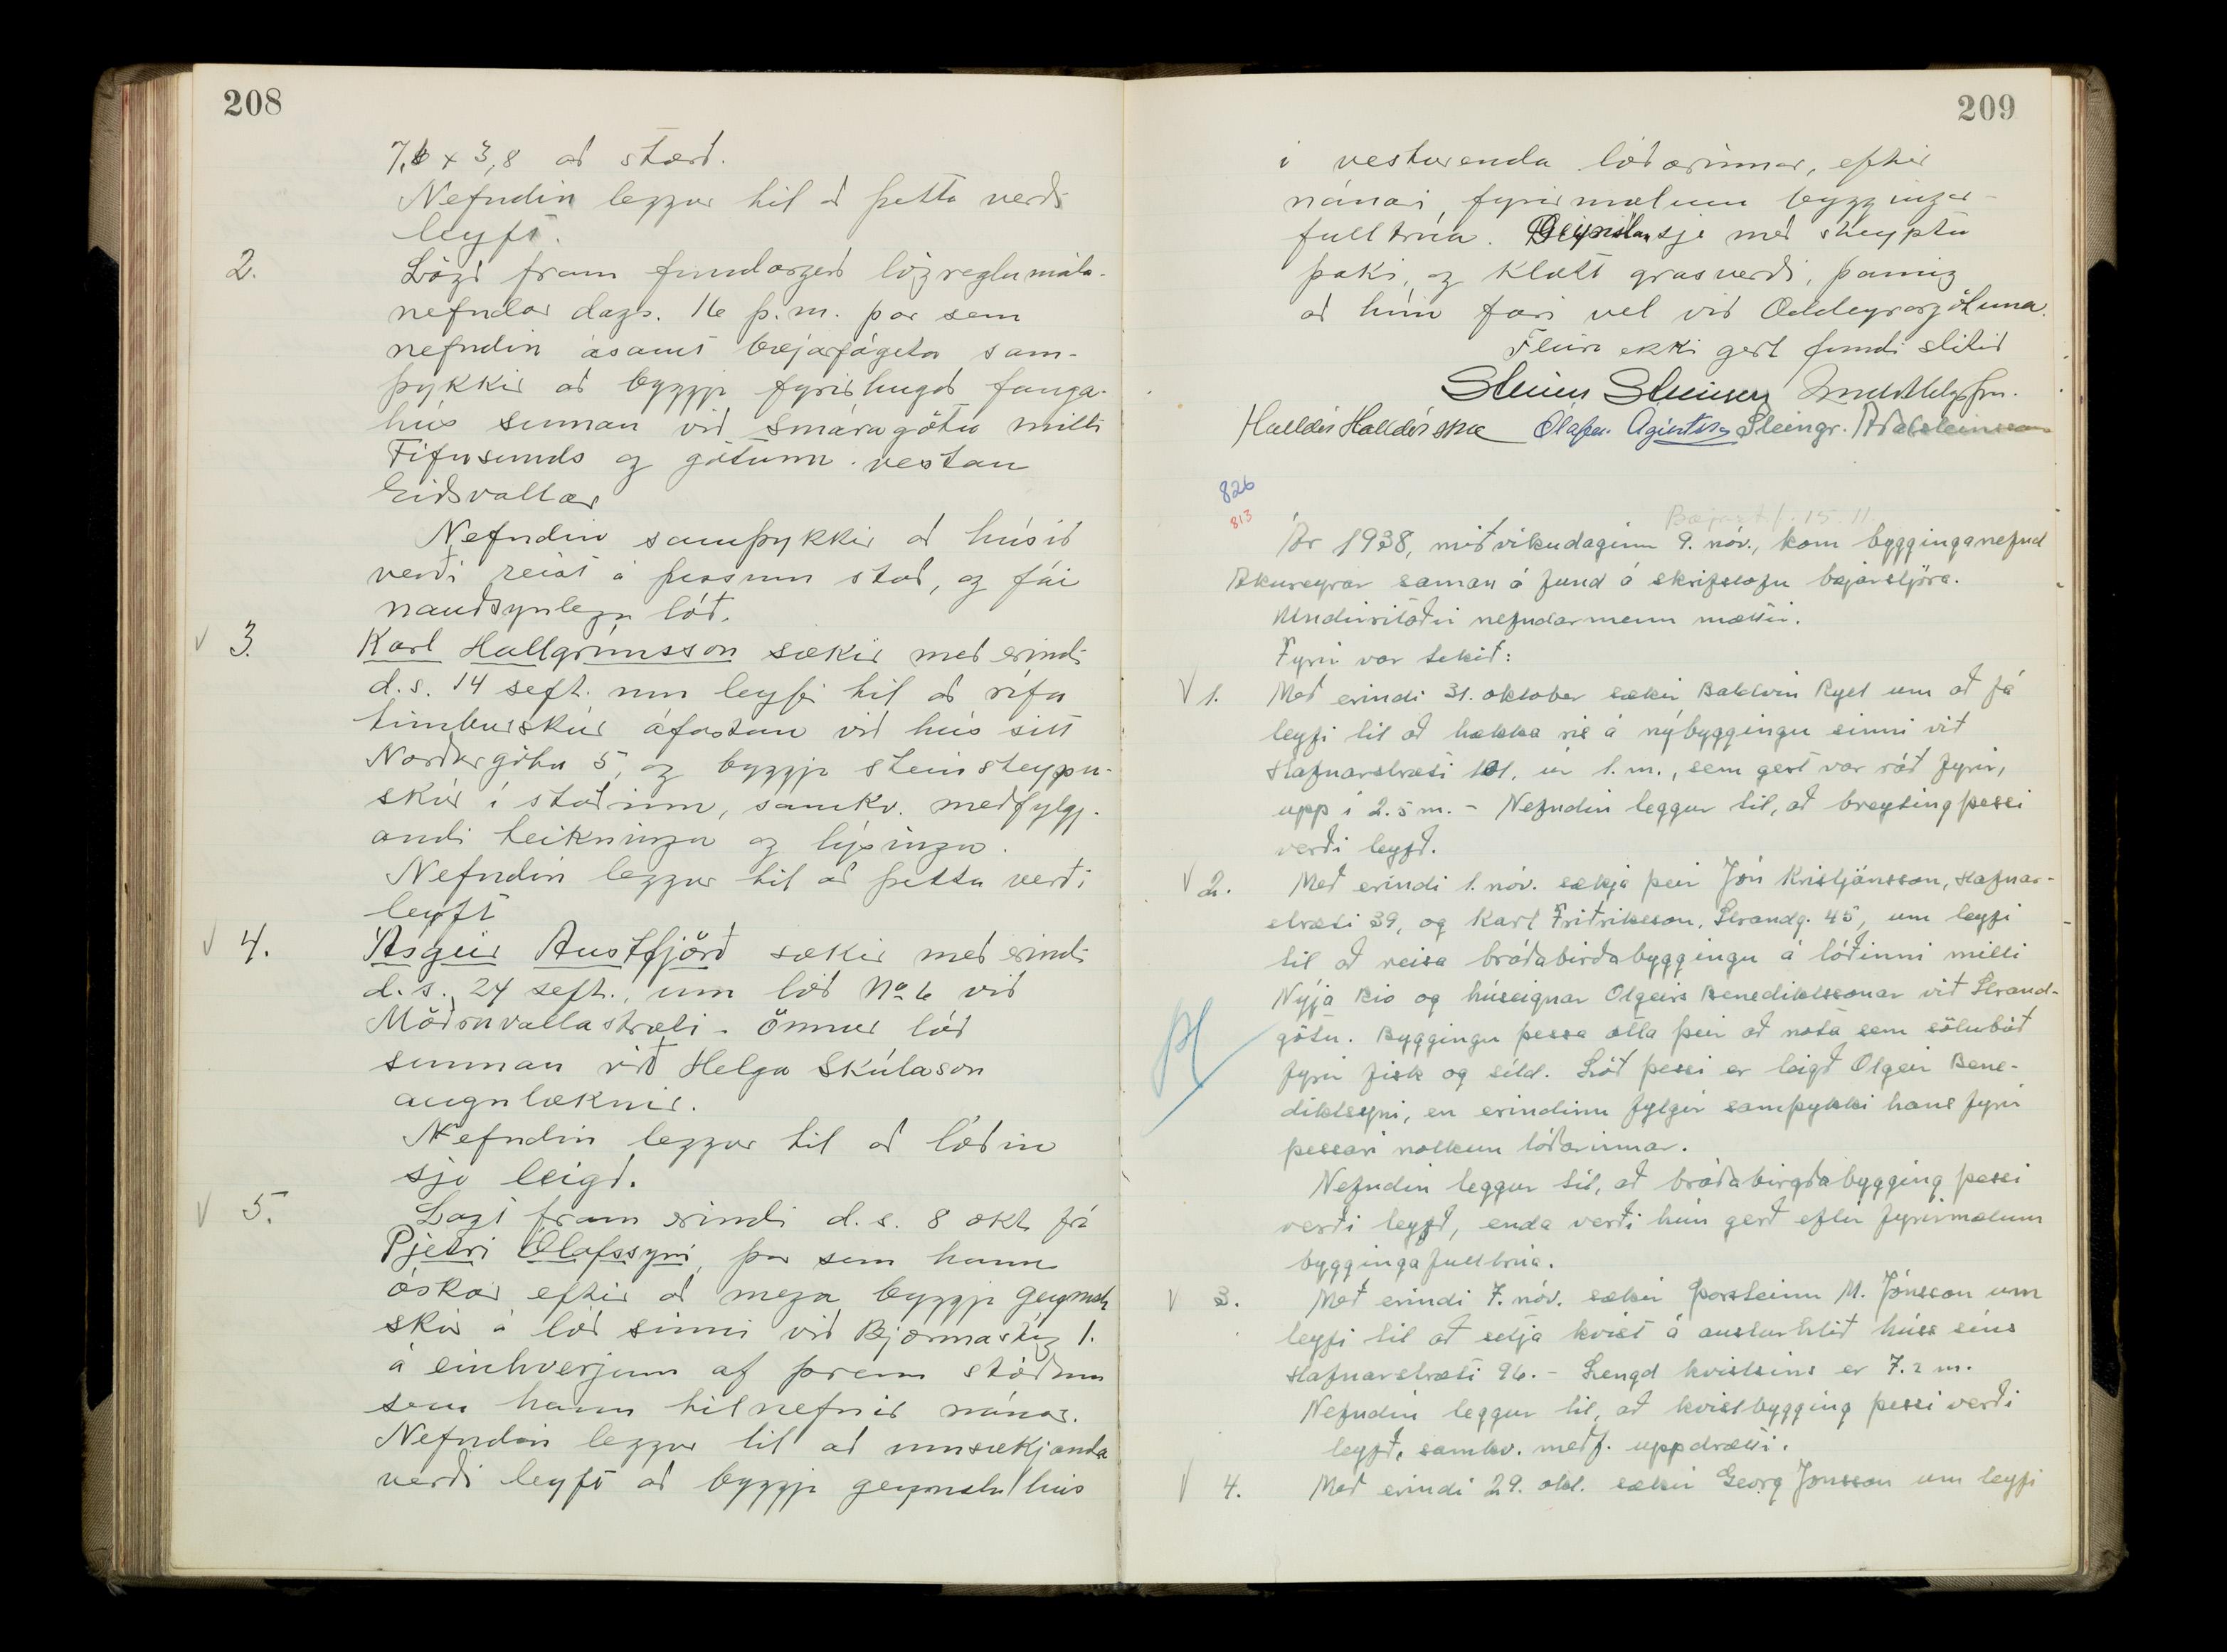 208
7,6 x 3,8 að stærð.
Nefndin leggur til að þetta verði
leyft.
2.
Lögð fram fundargerð lögreglumála-
nefndar dags. 16 þ.m. þar sem
nefndin ásamt bæjarfógeta sam-
þykkir að byggja fyrirhugað fanga-
hús sunnan við Smáragötu milli
Fífusunds og götunnar vestan
Eiðsvallar
Nefndin samþykkir að húsið
verði reist á þessum stað, og fái
nauðsynlega lóð.
V 3.
Karl Hallgrímsson sækir með erindi
d.s. 14 sept. um leyfi til að rífa
timburskúr áfastan við hús sitt
Norðurgötu 5, og byggja steinsteypu-
skúr í staðinn, samkv. meðfylgj-
andi teikningu og lýsingu.
Nefndin leggur til að þetta verði
leyft
V 4.
Ásgeir Austfjörð sækir með erindi
d.s. 24 sept., um lóð No 6 við
Möðruvallastræti - önnur lóð
sunnan við Helga Skúlason
augnlæknir.
Nefndin leggur til að lóðin
sje leigð.
V 5.
Lagt fram erindi d.s. 8 okt frá
Pjetri Ólafssyni, þar sem hann
óskar eftir að mega byggja geymslu
skúr á lóð sinni við Bjarmastíg 1.
á einhverjum af þrem stöðum
sem hann tilnefnir nánar.
Nefndin leggur til að umsækjanda
verði leyft að byggja geymslu hús
209
í vesturenda lóðarinnar, eftir
nánari fyrirmælum bygginga-
fulltrúa. Geymslan sje með steyptu
þaki, og klætt grasverði, þannig
að hún fari vel við Oddeyrargötuna.
Fleira ekki gert fundi slitið
Steinn Steinsen
Halldór Halldórsson Ólafur Ágústsson Steingr. Aðalsteinsson
826
813
Bæjarstj. 15.11.
Ár 1938, miðvikudaginn 9. nóv., kom bygginganefnd
Akureyrar saman á fund á skrifstofu bæjarstjóra.
Undirritaðir nefndarmenn mættir.
Fyrir var tekið:
V 1.
Með erindi 31. oktober sækir Baldvin Ryel um að fá
leyfi til að hækka ris á nýbyggingu sinni við
Hafnarstræti 101, úr 1. m., sem gert var ráð fyrir,
upp í 2.5 m. - Nefndin leggur til, að breyting þessi
verði leyfð.
V 2.
Með erindi 1. nóv. sækja þeir Jón Kristjánsson, Hafnar-
stræti 39, og Karl Friðriksson, Strandg. 45, um leyfi
til að reisa bráðabirðabyggingu á lóðinni milli
Nýja Bio og húseignar Olgeirs Benediktssonar við Strand-
götu. Byggingu þessa ætla þeir að nota sem sölubúð
fyrir fisk og síld. Lóð þessi er leigð Olgeir Bene-
diktssyni, en erindinu fylgir samþykki hans fyrir
þessari notkun lóðarinnar.
Nefndin leggur til, að bráðabirgðabygging þessi
verði leyfð, enda verði hún gerð eftir fyrirmælum
byggingafulltrúa.
V 3.
Með erindi 7. nóv. sækir Þorsteinn M. Jónsson um
leyfi til að setja kvist á austurhlið húss síns
Hafnarstræti 96. - Lengd kvistsins er 7.2 m.
Nefndin leggur til, að kvistbygging þessi verði
leyfð, samkv. meðf. uppdrætti.
V 4.
Með erindi 29. okt. sækir Georg Jónsson um leyfi